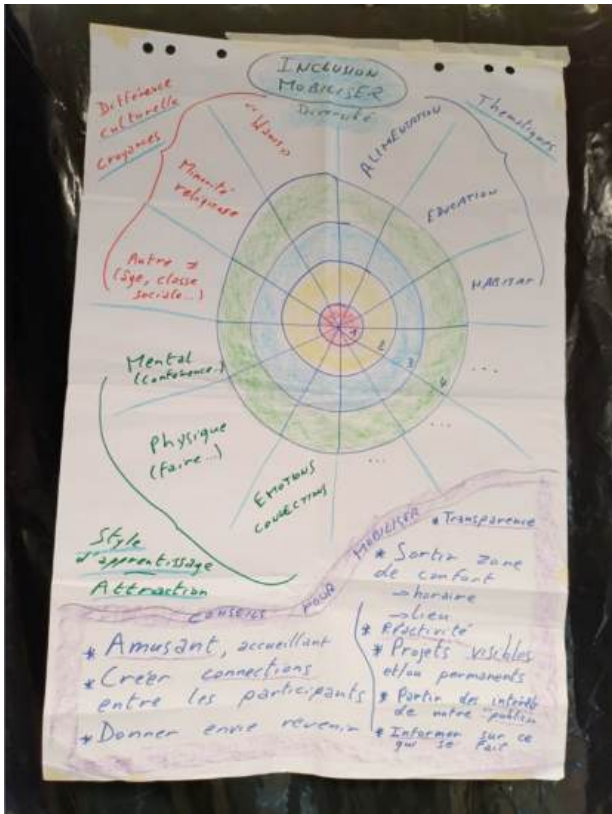 INCLUSION
MOBILISER
Diversité
Différence
culturelle
croyances
Minorité
religieuse
Autre ≠
(âge, classe
sociale...)
Thématiques
ALIMENTATION
EDUCATION
HABITAT
...
...
...
1
2
3
4
Mental
(conférence..)
Physique
(faire...)
EMOTIONS
CONNECTIONS
Style
d'apprentissage
Attraction
CONSEILS POUR MOBILISER
* Amusant, accueillant
* Créer connections
entre les participants
* Donner envie revenir
* Transparence
* Sortir zone
de confort
→ horaire
→ lieu
* Réactivité
* Projets visibles
et/ou permanents
* Partir des intérêts
de notre public
* Informer sur ce
qui se fait